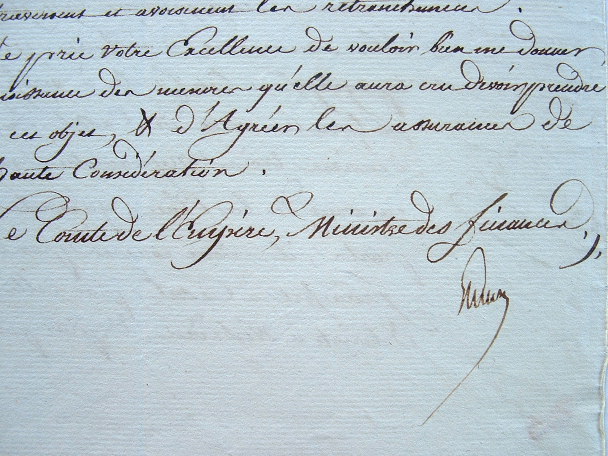 et les retranchemens.
prie Votre Excellence de vouloir bien me donner
des mesures qu'elle aura cru devoir prendre
cet objet, & d'Agréer les assurances de
haute Considération.
e Comte de l'Empire, Ministre des finances,